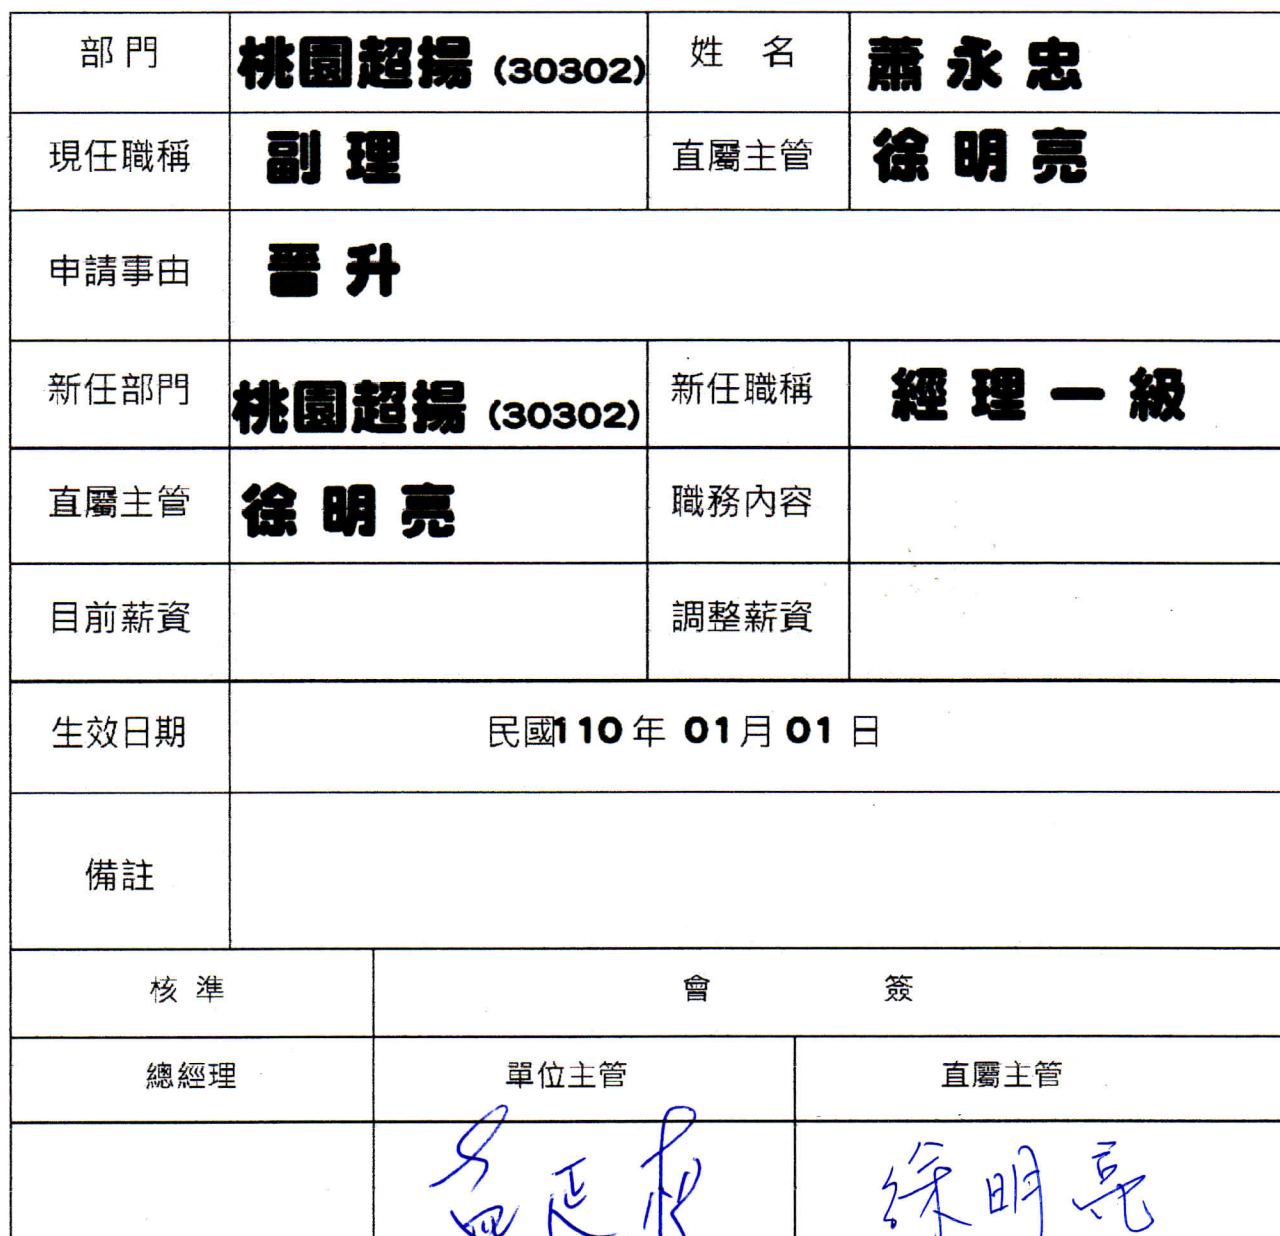 部門 桃園超揚 (30302) 姓 名 蕭永忠
現任職稱 副理 直屬主管 徐明亮
申請事由 晉升
新任部門 桃園超揚 (30302) 新任職稱 經理一級
直屬主管 徐明亮 職務內容
目前薪資 調整薪資
生效日期 民國110年 01月01日
備註
核準 會 簽
總經理 單位主管 直屬主管
徐明亮